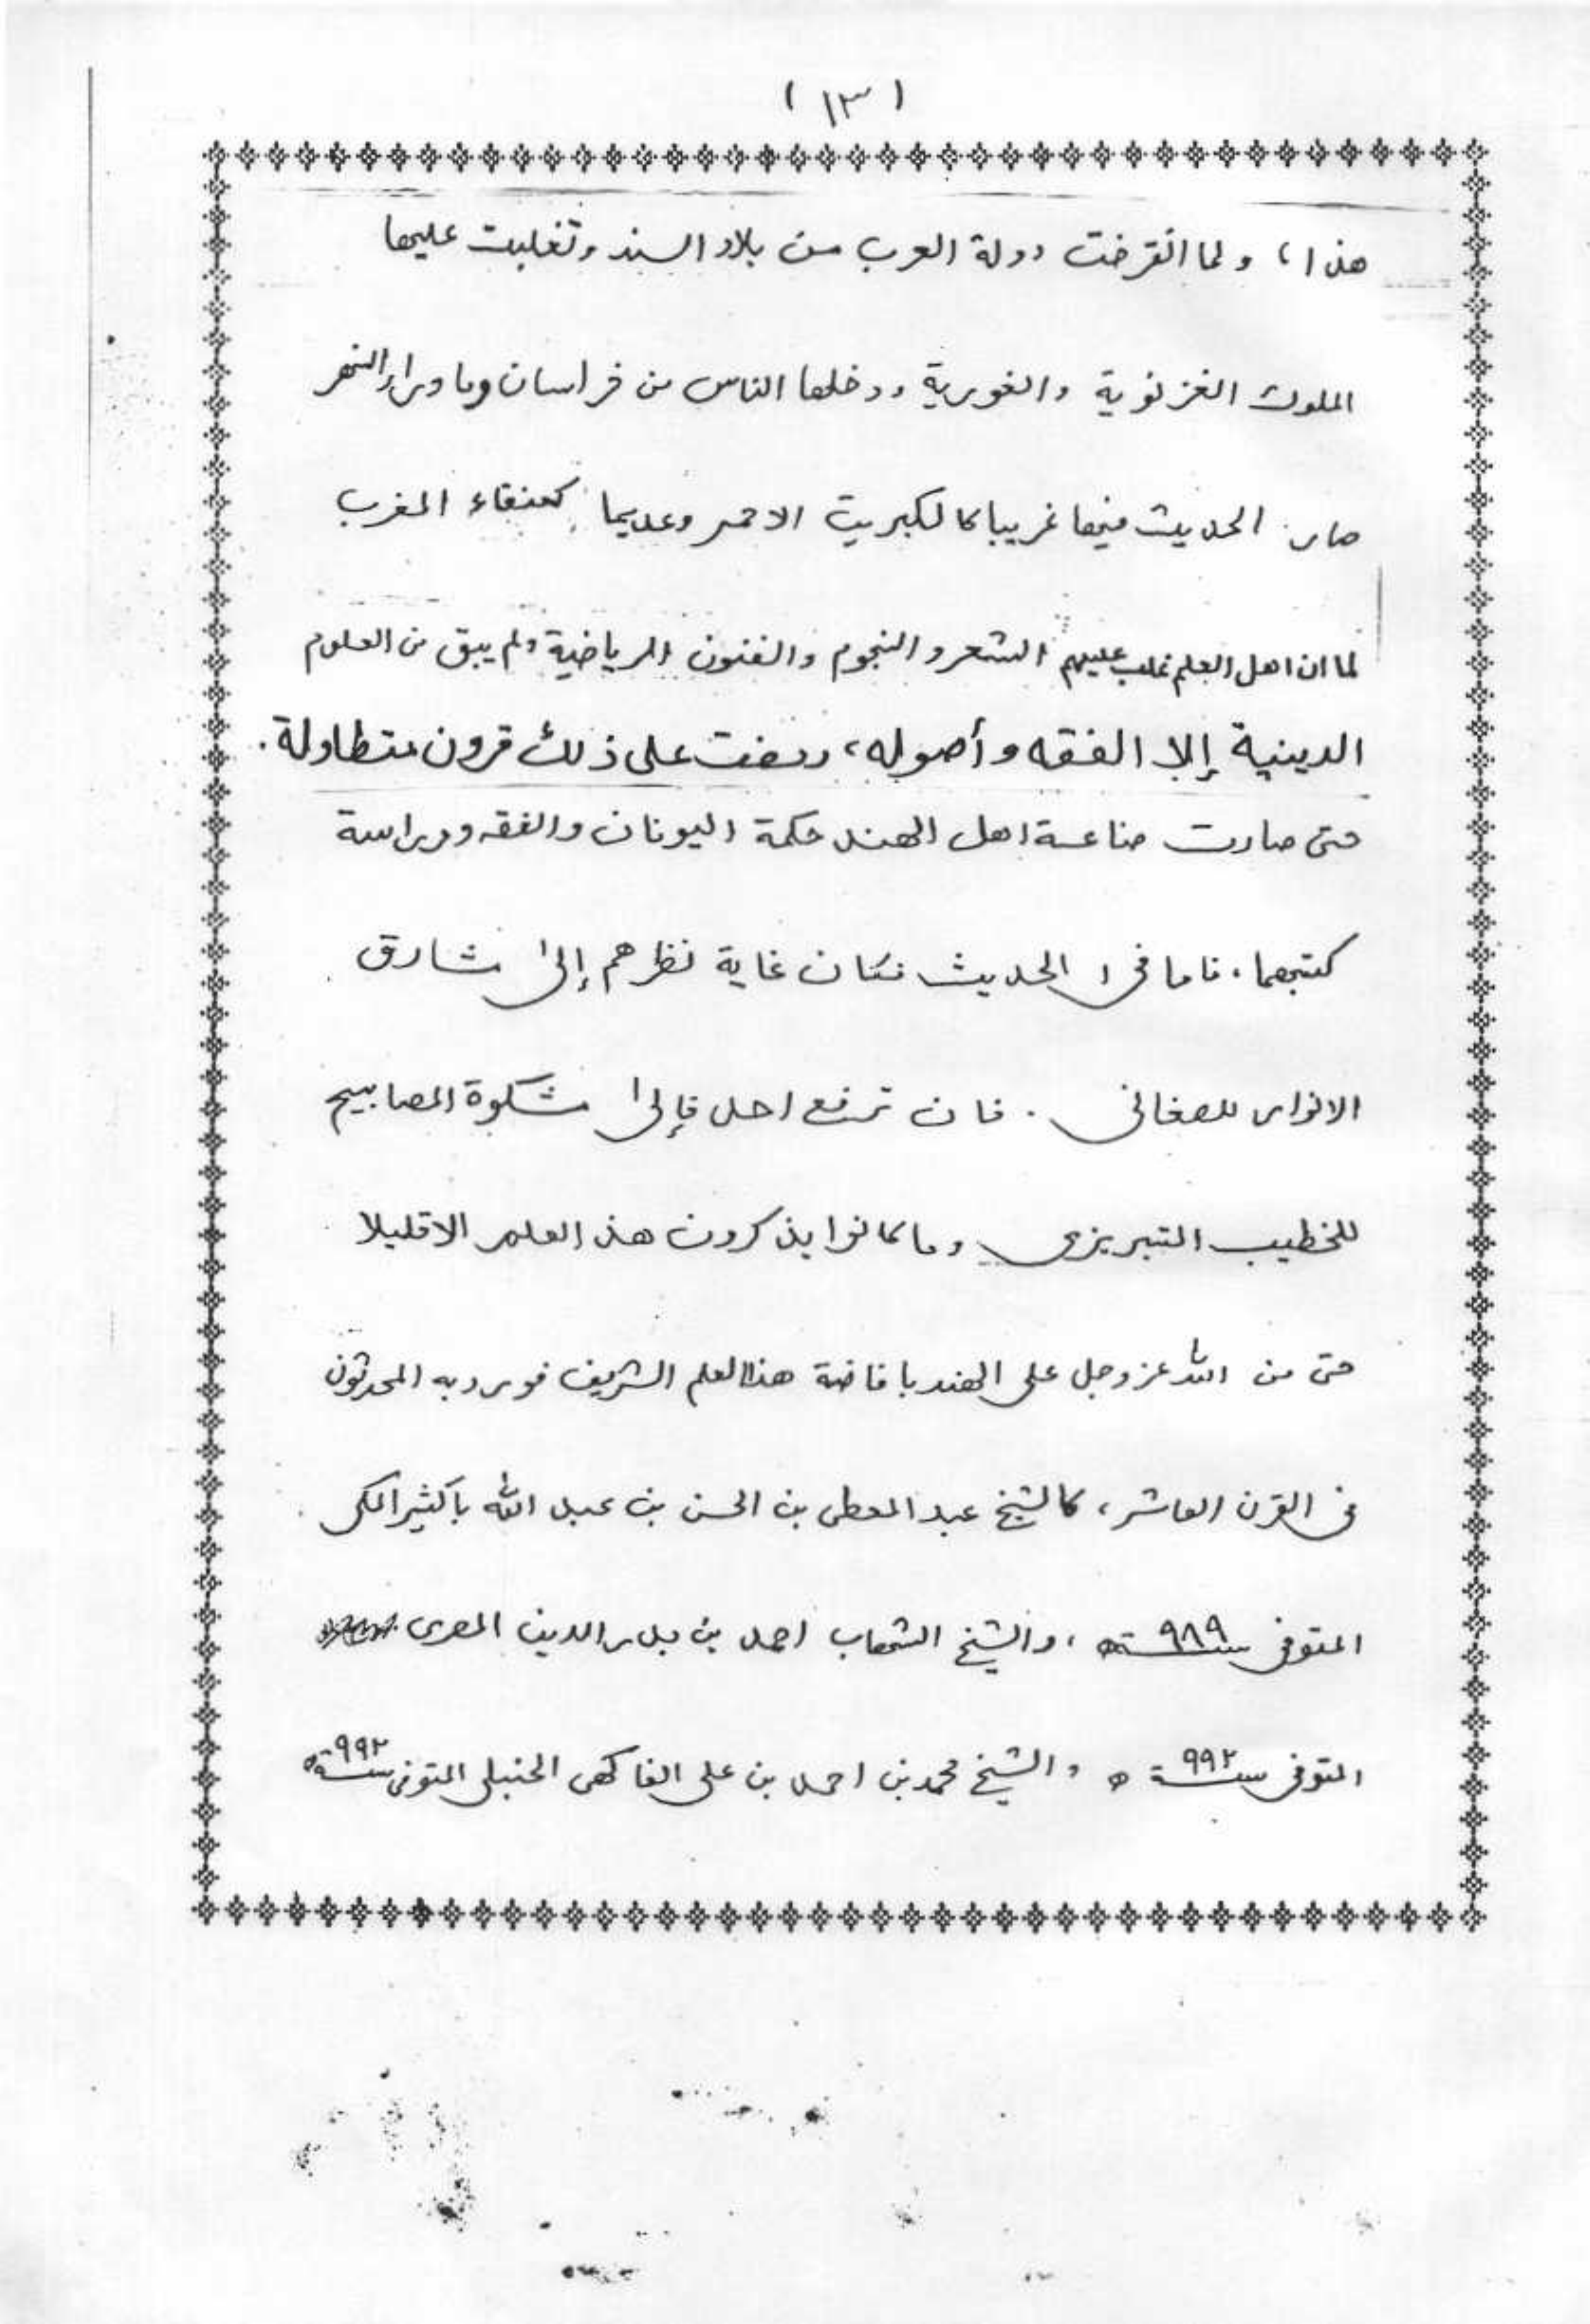 ( ١٣ )
هذا ، ولما انقرضت دولة العرب من بلاد السند وتغلبت عليها
الملوك الغزنوية والغورية ودخلها الناس من خراسان وما وراء النهر
صار الحديث فيها غريبا كالكبريت الاحمر وعديما كعنقاء المغرب
لما ان اهل العلم غلب عليهم الشعر والنجوم والفنون الرياضية ولم يبق من العلوم
الدينية إلا الفقه وأصوله، ومضت على ذلك قرون متطاولة.
حتى صارت صناعة اهل الهند حكمة اليونان والفقه ودراسة
كتبهما، فاما في الحديث فكان غاية نظرهم إلى مشارق
الانوار للصغاني . فان ترفع احد فإلى مشكوة المصابيح
للخطيب التبريزي وما كانوا يذكرون هذ العلم الا قليلا
حتى من الله عز وجل على الهند بافاضة هذا العلم الشريف فورد به المحدثون
في القرن العاشر، كالشيخ عبد المعطى بن الحسن بن عبد الله باكثير المكى
المتوفى سنة ٩٨٩ه ، والشيخ الشهاب احمد بن بدر الدين المصرى
المتوفى سنة ٩٩٢ ه والشيخ محمد بن احمد بن على الفاكهى الحنبلى المتوفى سنة ٩٩٢ه